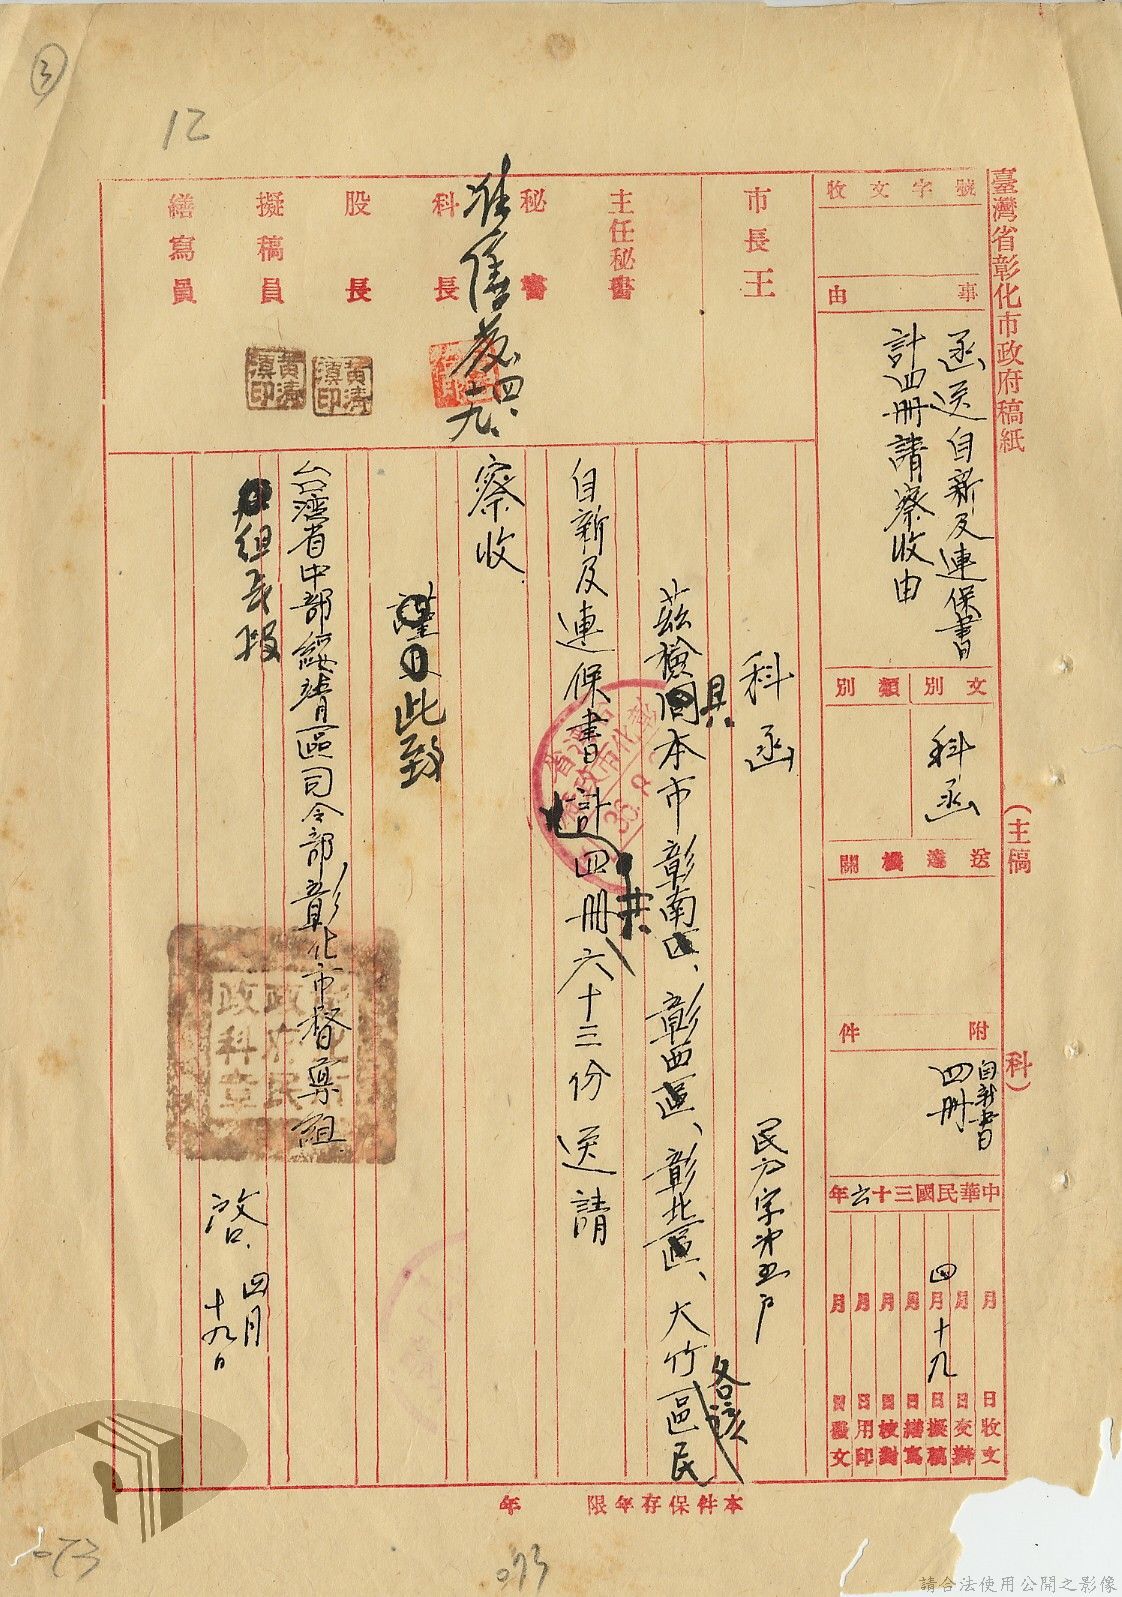 臺灣省彰化市政府稿紙
(主稿 科)
收文字號
事由
函送自新及連保書
計四冊請察收由
文別
類別
科函
送達機關
附件
自新書
四冊
中華民國三十六年
月 日收文
月 日交辦
四月十九日擬稿
月 日繕寫
月 日校對
月 日用印
月 日發文
市長王
主任秘書
秘書
科長
股長
擬稿員
繕寫員
四、十九、
黃清滇印
黃清滇印
科函
民
茲檢具本市彰南區、彰西區、彰北區、大竹區民
各該
自新及連保書計四冊
共
六十三份送請
察收
此致
台灣省中部綏靖區司令部彰化市督察組
組
啓、四月
十九日
彰化市政府民政科章
本件保存年限 年
3
12
073
073
請合法使用公開之影像